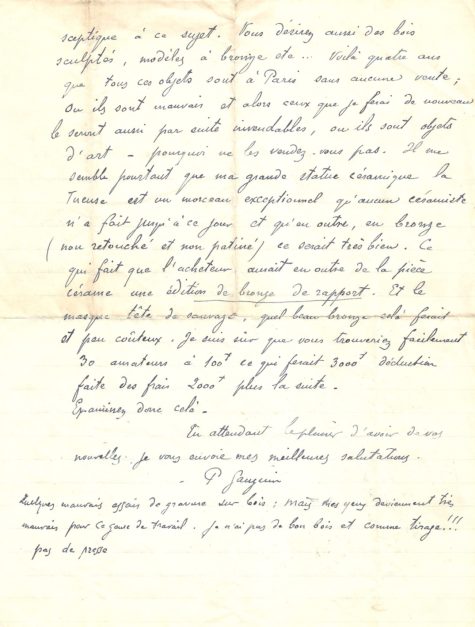 sceptique à ce sujet. Vous désirez aussi des bois
sculptés, modèles à bronze etc... Voilà quatre ans
que tous ces objets sont à Paris sans aucune vente;
Ou ils sont mauvais et alors ceux que je ferai de nouveau
le seront aussi par suite invendables, ou ils sont objets
d'art - pourquoi ne les vendez-vous pas. Il me
semble pourtant que ma grande statue céramique la
Tueuse est un morceau exceptionnel qu'aucun céramiste
n'a fait jusqu'à ce jour et qu'en outre, en bronze
(non retouché et non patiné) ce serait très bien. Ce
qui fait que l'acheteur aurait en outre de la pièce
cérame une édition de bronze de rapport. Et le
masque tête de sauvage, quel beau bronze celà ferait
et peu coûteux. Je suis sûr que vous trouveriez facilement
30 amateurs à 100f ce qui ferait 3000f déduction
faite des frais 2000f plus la suite.
Examinez donc celà -
En attendant le plaisir d'avoir de vos
nouvelles je vous envoie mes meilleures salutations.
- P Gauguin
Quelques mauvais essais de gravure sur bois; mais mes yeux deviennent très
mauvais pour ce genre de travail. Je n'ai pas de bon bois et comme tirage!!!
pas de presse